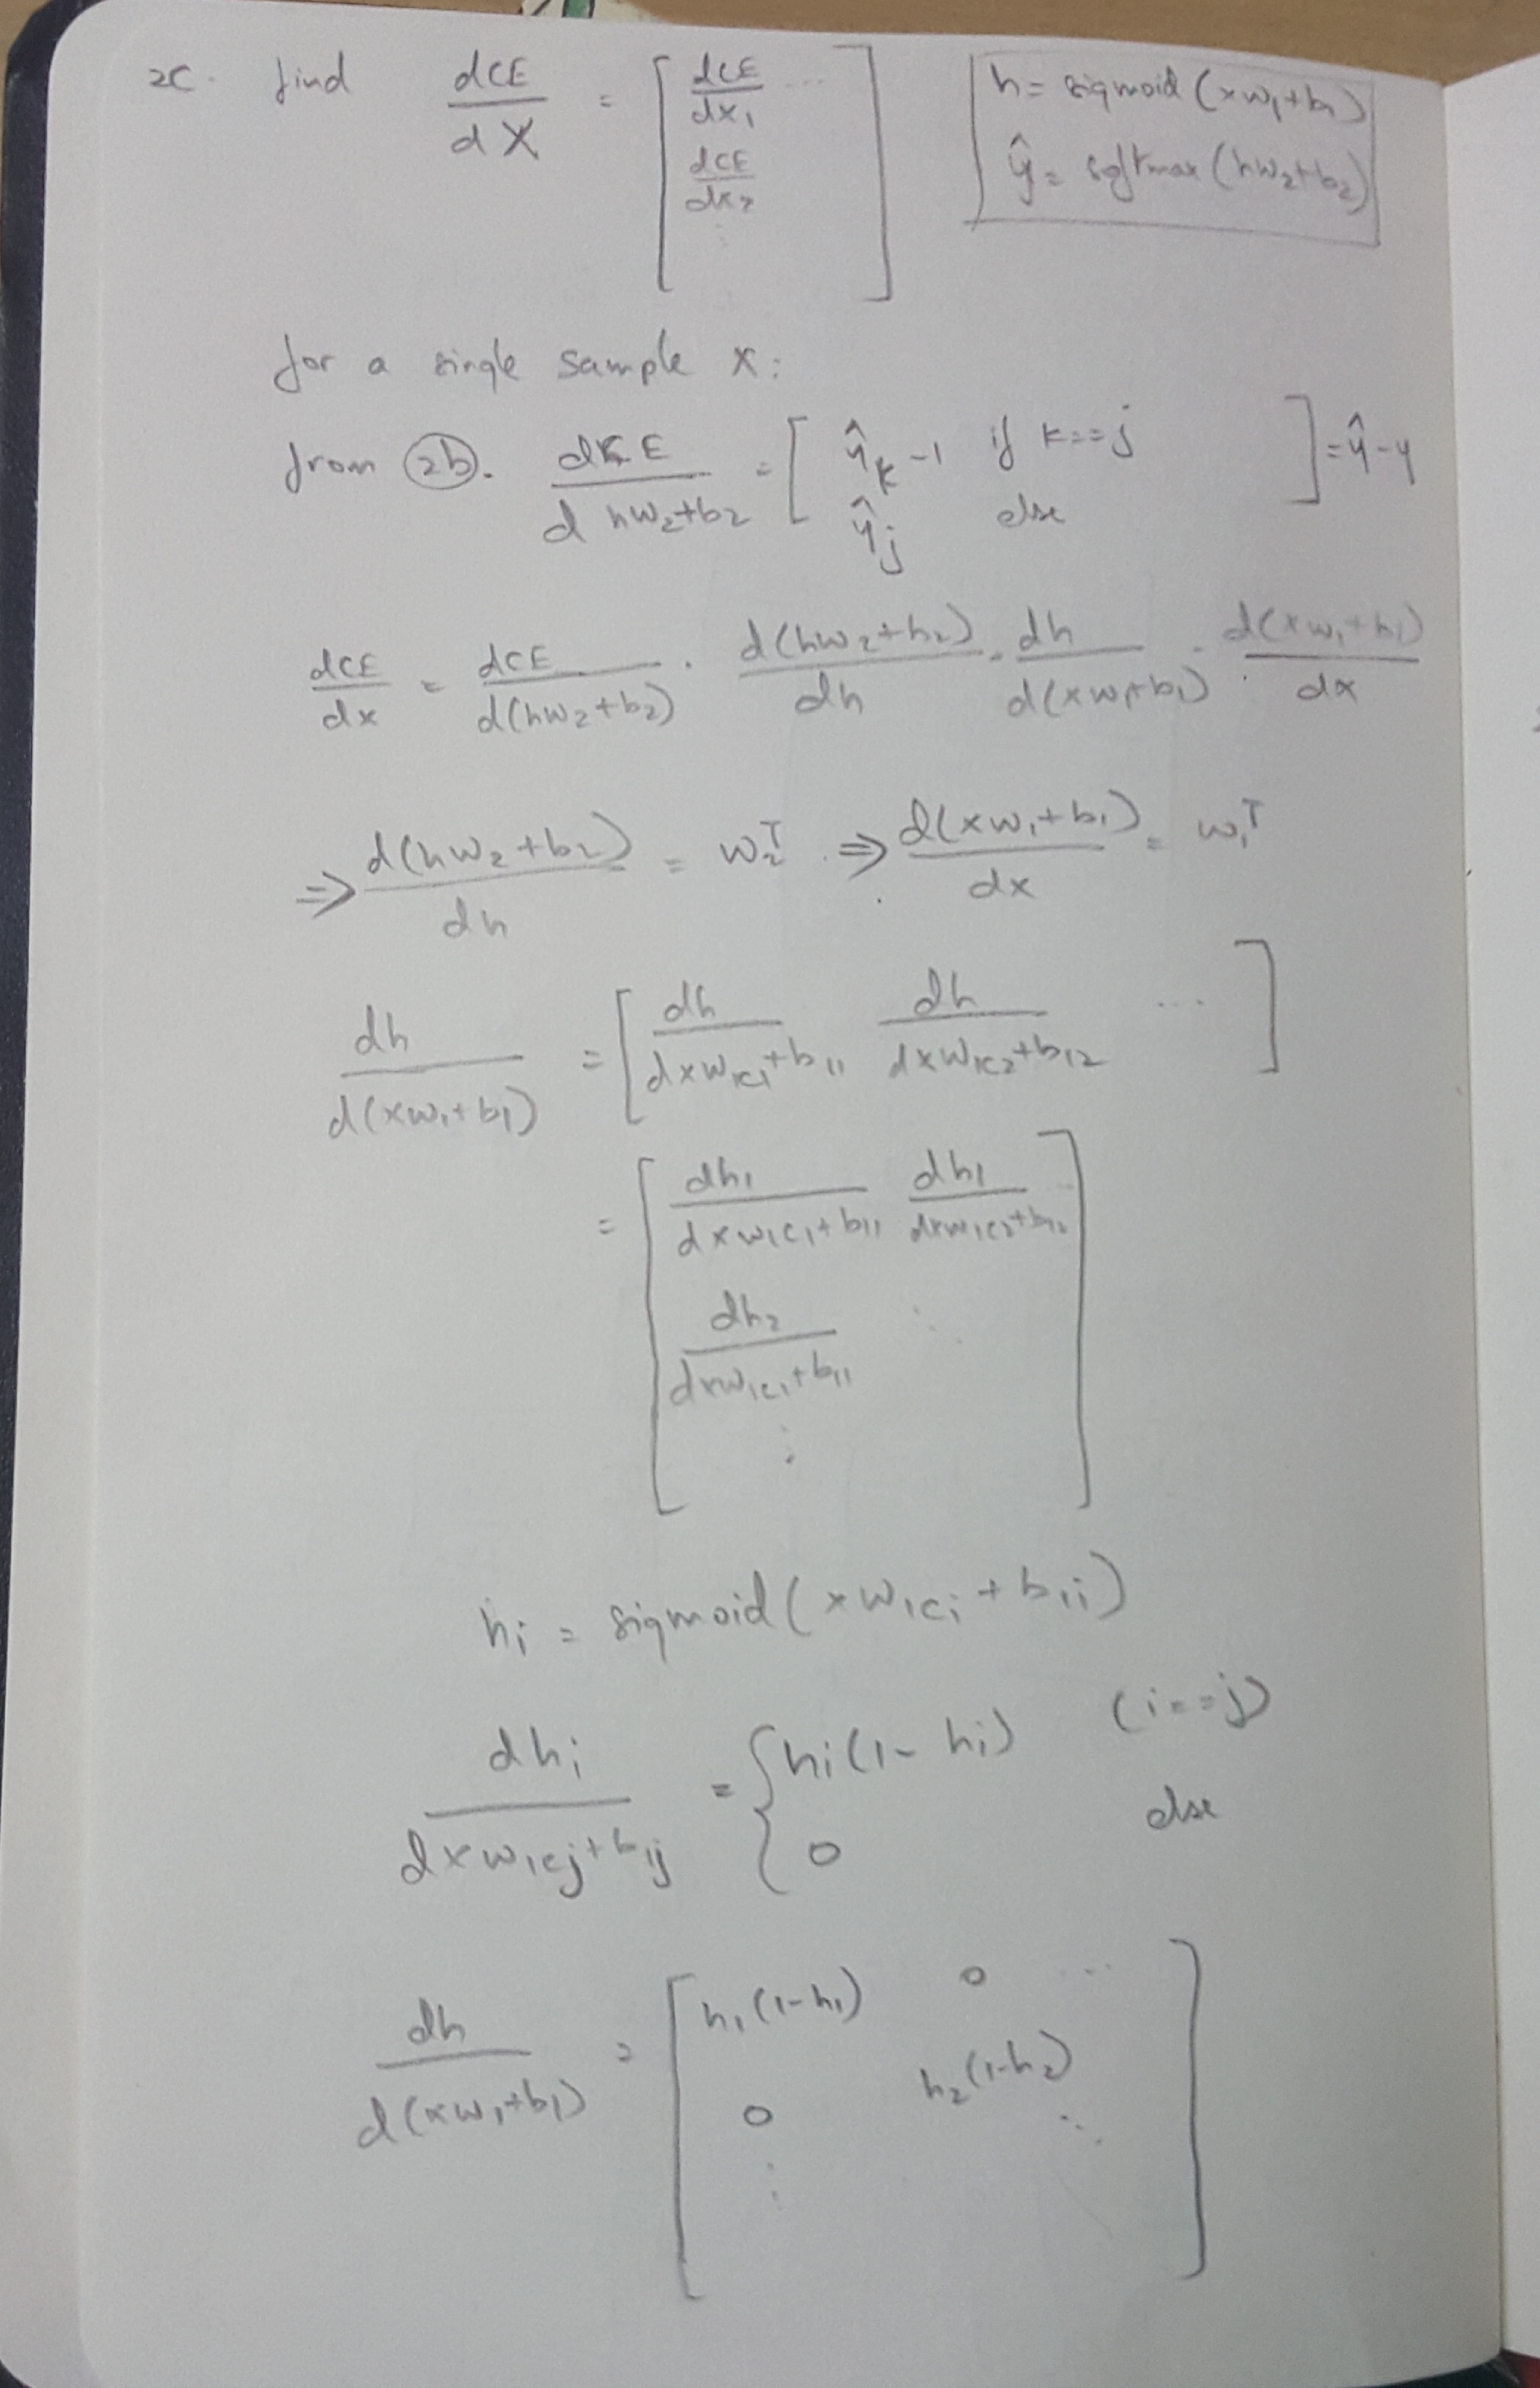 2c. find dCE/dX = [ dCE/dx₁ ... dCE/dx₂ ⋮ ]
h = sigmoid (xw₁+b₁)
ŷ = softmax (hw₂+b₂)
for a single sample x:
from (2b). dCE/d hw₂+b₂ = [ ŷₖ -1 if k==j ŷⱼ else ] = ŷ-y
dCE/dx = dCE/d(hw₂+b₂) . d(hw₂+b₂)/dh . dh/d(xw₁+b₁) . d(xw₁+b₁)/dx
⇒ d(hw₂+b₂)/dh = w₂ᵀ . ⇒ d(xw₁+b₁)/dx = w₁ᵀ
dh/d(xw₁+b₁) = [ dh/dxw₁c₁+b₁₁ dh/dxw₁c₂+b₁₂ ... ]
= [ dh₁/dxw₁c₁+b₁₁ dh₁/dxw₁c₂+b₁₂ ...
dh₂/dxw₁c₁+b₁₁ ⋱
⋮ ]
hᵢ = sigmoid (xw₁cᵢ + b₁ᵢ)
dhᵢ/dxw₁cⱼ+b₁ⱼ = { hᵢ(1-hᵢ) (i==j)
0 else
dh/d(xw₁+b₁) = [ h₁(1-h₁) 0 ...
0 h₂(1-h₂)
⋮ ⋱ ]